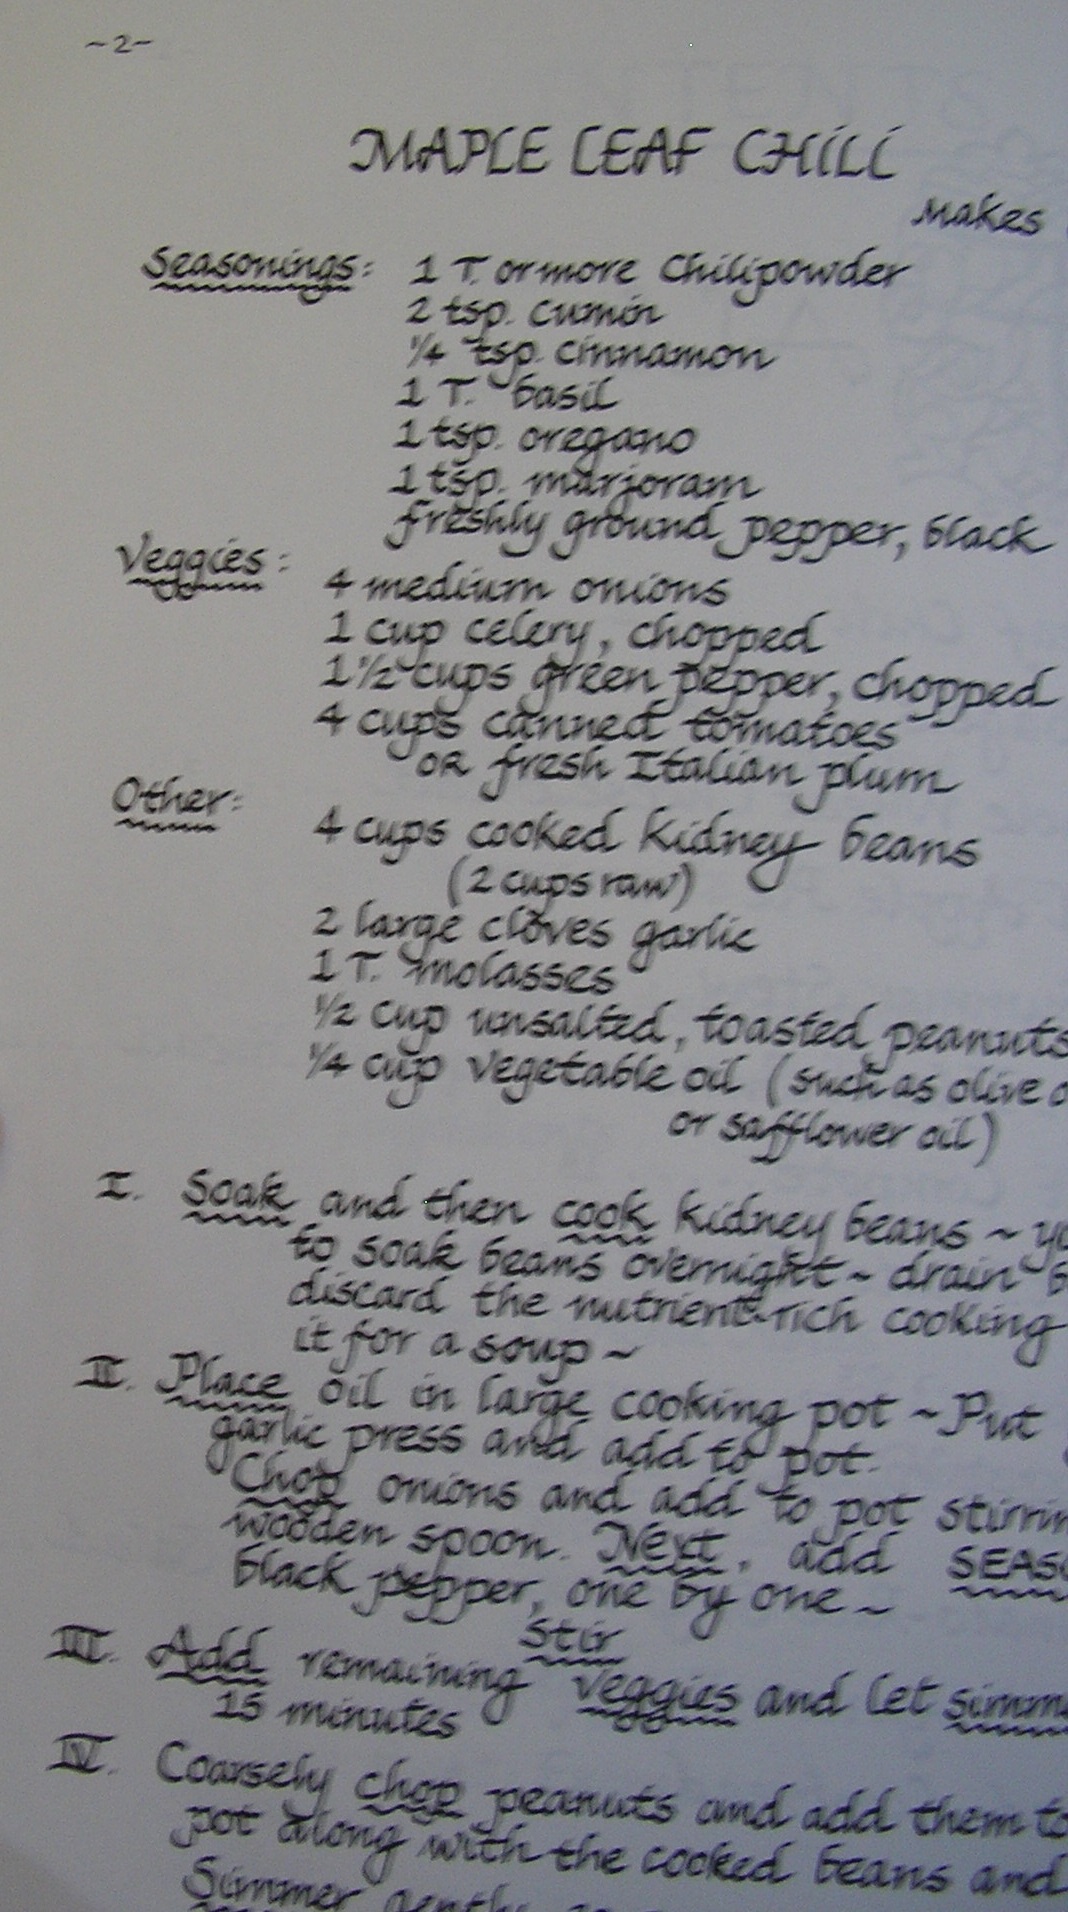 ~2~
MAPLE LEAF CHILI
Makes
Seasonings: 1 T. or more Chili powder
2 tsp. cumin
1/4 tsp. cinnamon
1 T. basil
1 tsp. oregano
1 tsp. marjoram
freshly ground pepper, black
Veggies:
4 medium onions
1 cup celery, chopped
1 1/2 cups green pepper, chopped
4 cups canned tomatoes
OR fresh Italian plum
Other:
4 cups cooked kidney beans
(2 cups raw)
2 large cloves garlic
1 T. molasses
1/2 cup unsalted, toasted peanuts
1/4 cup vegetable oil (such as olive
or safflower oil)
I. Soak and then cook kidney beans ~
to soak beans overnight ~ drain
discard the nutrient-rich cooking
it for a soup ~
II. Place oil in large cooking pot ~ Put
garlic press and add to pot.
Chop onions and add to pot
wooden spoon. Next, add
black pepper, one by one ~
Stir
III. Add remaining Veggies and let
15 minutes
IV. Coarsely chop peanuts and add them to
pot along with the cooked beans and
Simmer gently